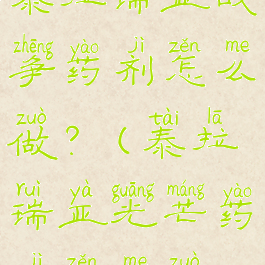 zhēng yào jì zěn me
争药剂怎么
zuò tài lā
做?(泰拉
ruì yà guāng máng yào
瑞亚光芒药
jì zěn me zuò